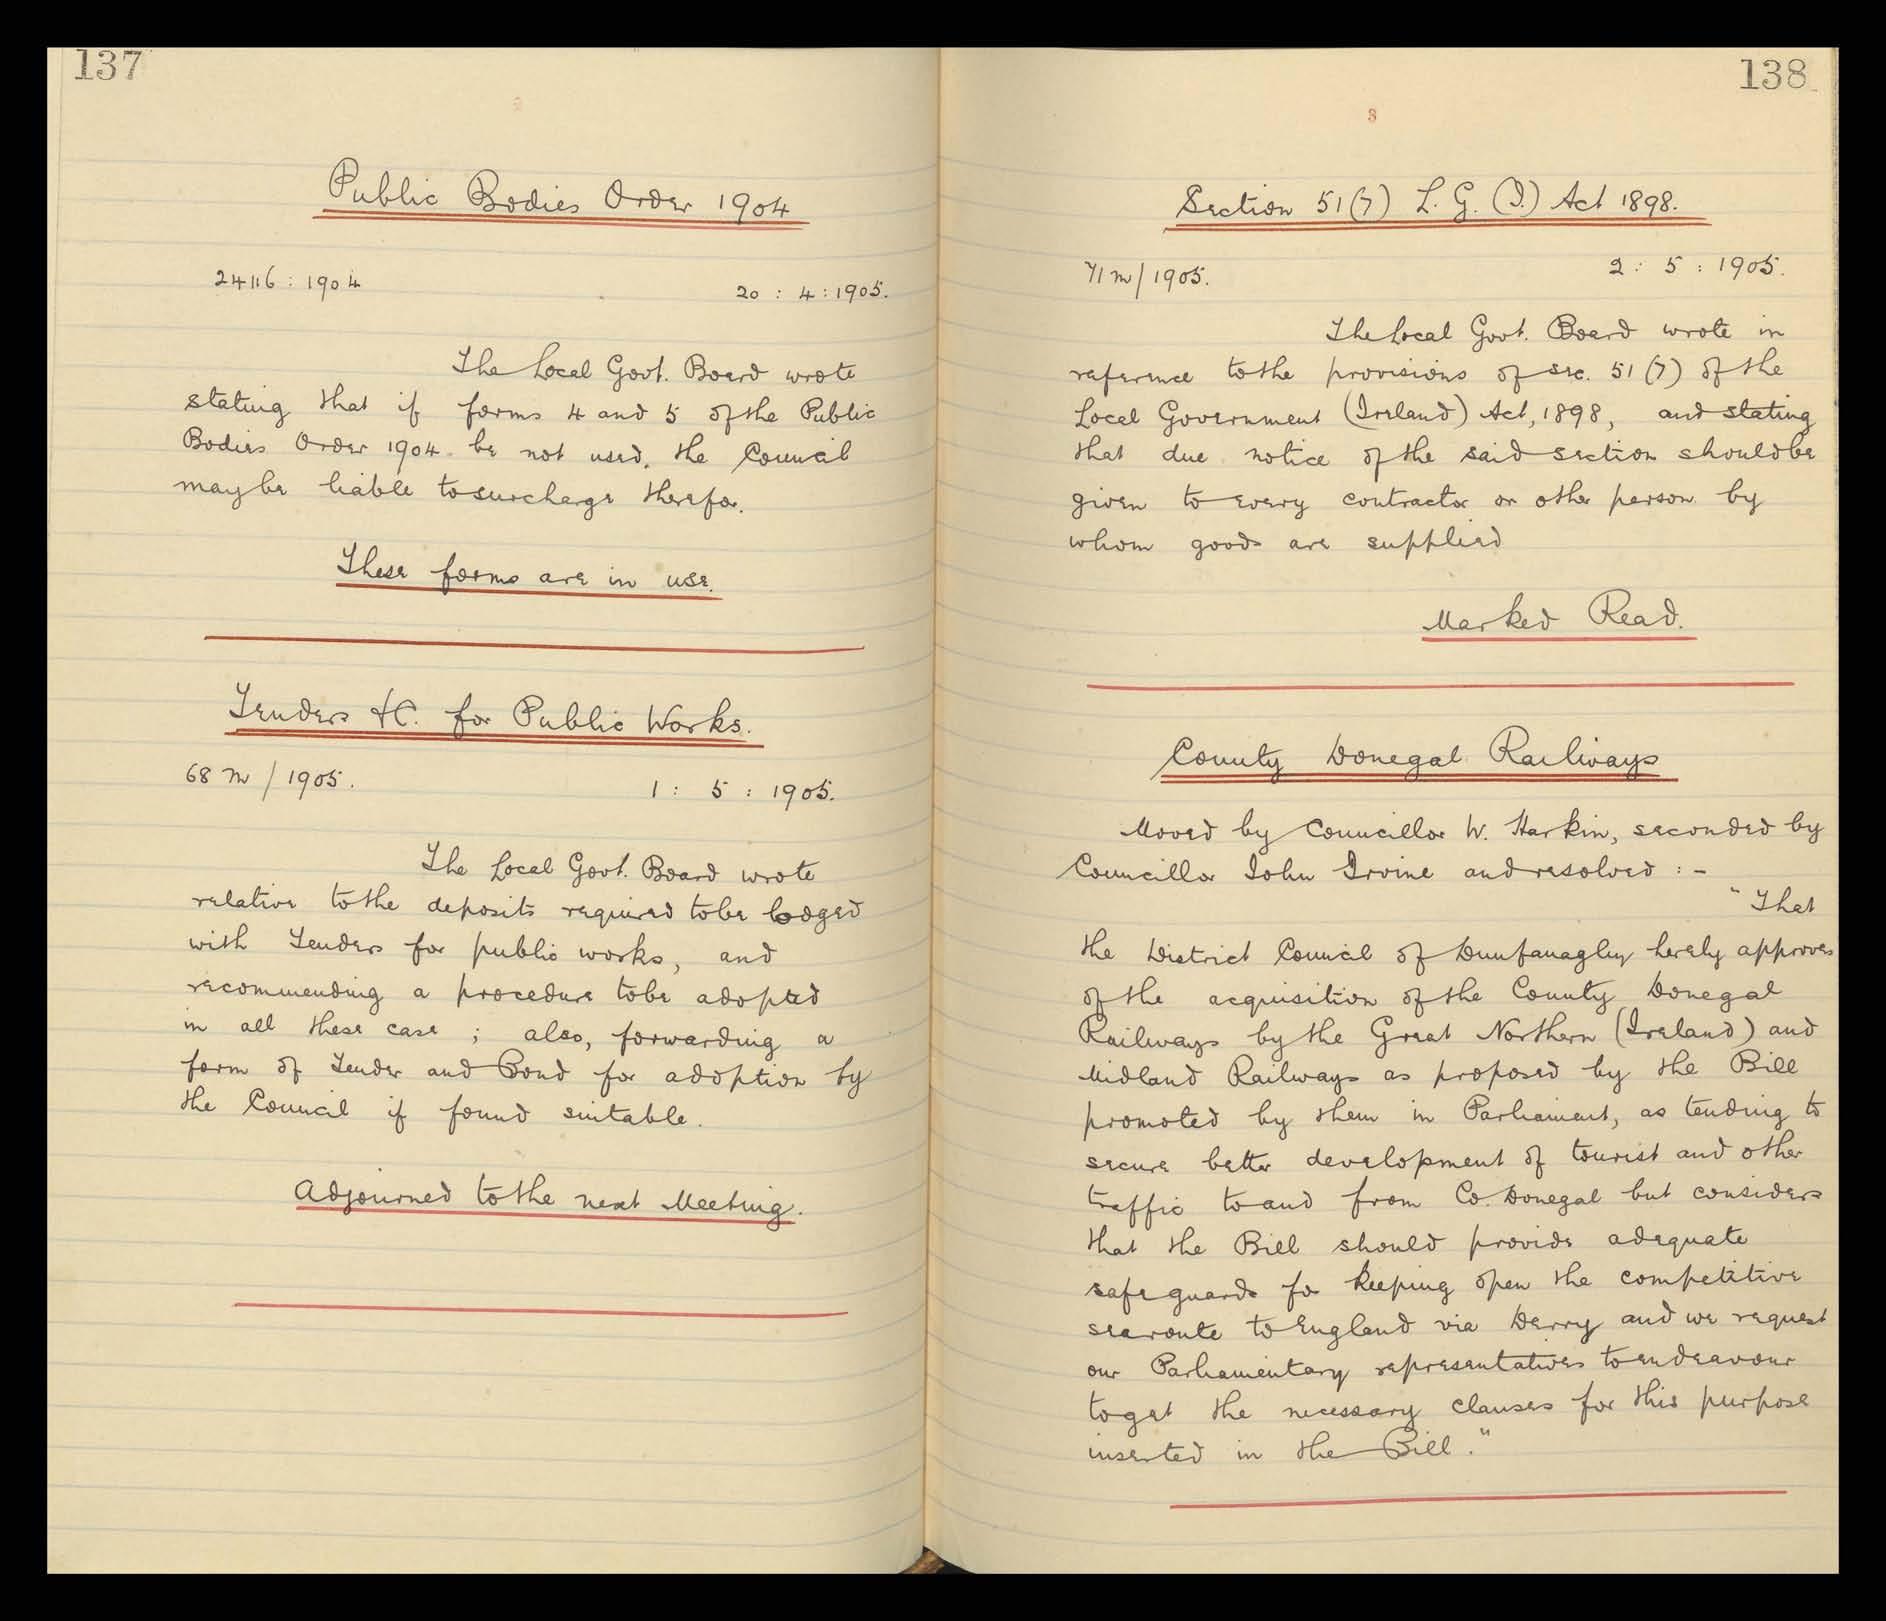 137
Public Bodies Order 1904
24116 : 1904
20 : 4 : 1905.
The Local Govt. Board wrote
stating that if forms 4 and 5 of the Public
Bodies Order 1904 be not used, the Council
may be liable to surcharge therefor.
These forms are in use.
Tenders &C. for Public Works.
68 M / 1905.
1 : 5 : 1905.
The Local Govt. Board wrote
relative to the deposits required to be lodged
with Tenders for public works, and
recommending a procedure to be adopted
in all these case ; also, forwarding a
form of Tender and Bond for adoption by
the Council if found suitable.
Adjourned to the next Meeting.
138
3
Section 51(7) L. G. (I.) Act 1898.
71 m / 1905.
2 : 5 : 1905.
The Local Govt. Board wrote in
reference to the provisions of sec. 51(7) of the
Local Government (Ireland) Act, 1898, and stating
that due notice of the said section should be
given to every contractor or other person by
whom goods are supplied
Marked Read.
County Donegal Railways
Moved by Councillor W. Harkin, seconded by
Councillor John Irvine and resolved : -
"That
the District Council of Dunfanaghy hereby approves
of the acquisition of the County Donegal
Railways by the Great Northern (Ireland) and
Midland Railways as proposed by the Bill
promoted by them in Parliament, as tending to
secure better development of tourist and other
traffic to and from Co. Donegal but considers
that the Bill should provide adequate
safeguards for keeping open the competitive
searoute to England via Derry and we request
our Parliamentary representatives to endeavour
to get the necessary clauses for this purpose
inserted in the Bill."